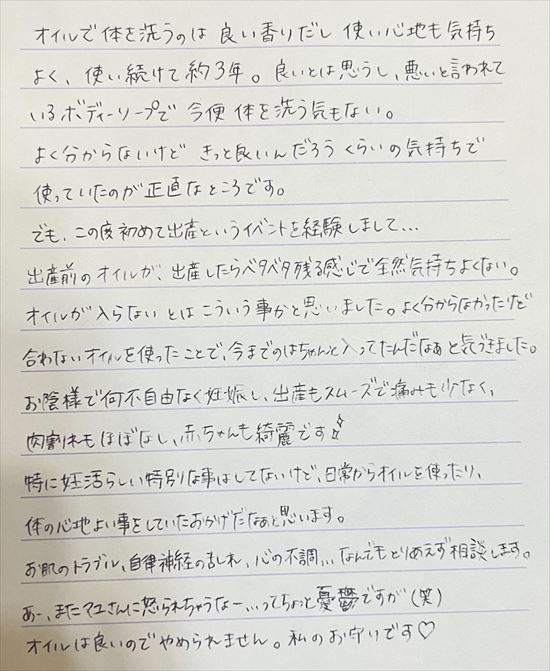 オイルで体を洗うのは良い香りだし 使い心地も気持ち
よく、使い続けて約3年。良いとは思うし、悪いと言われて
いるボディーソープで今更体を洗う気もない。
よく分からないけど きっと良いんだろうくらいの気持ちで
使っていたのが正直なところです。
でも、この度初めて出産というイベントを経験しまして…
出産前のオイルが、出産したらベタベタ残る感じで全然気持ちよくない。
オイルが入らない とはこういう事かと思いました。よく分からなかったけど
合わないオイルを使ったことで、今までのはちゃんと入ってたんだなぁと気づきました。
お陰様で何不自由なく妊娠し、出産もスムーズで痛みも少なく、
肉割れもほぼなし、赤ちゃんも綺麗です
特に妊活らしい特別な事はしてないけど、日常からオイルを使ったり、
体の心地よい事をしていたおかげだなぁと思います。
お肌のトラブル、自律神経の乱れ、心の不調… なんでもとりあえず相談します。
あー、またマユさんに怒られちゃうなー…ってちょっと憂鬱ですが(笑)
オイルは良いのでやめられません。私のお守りです♡